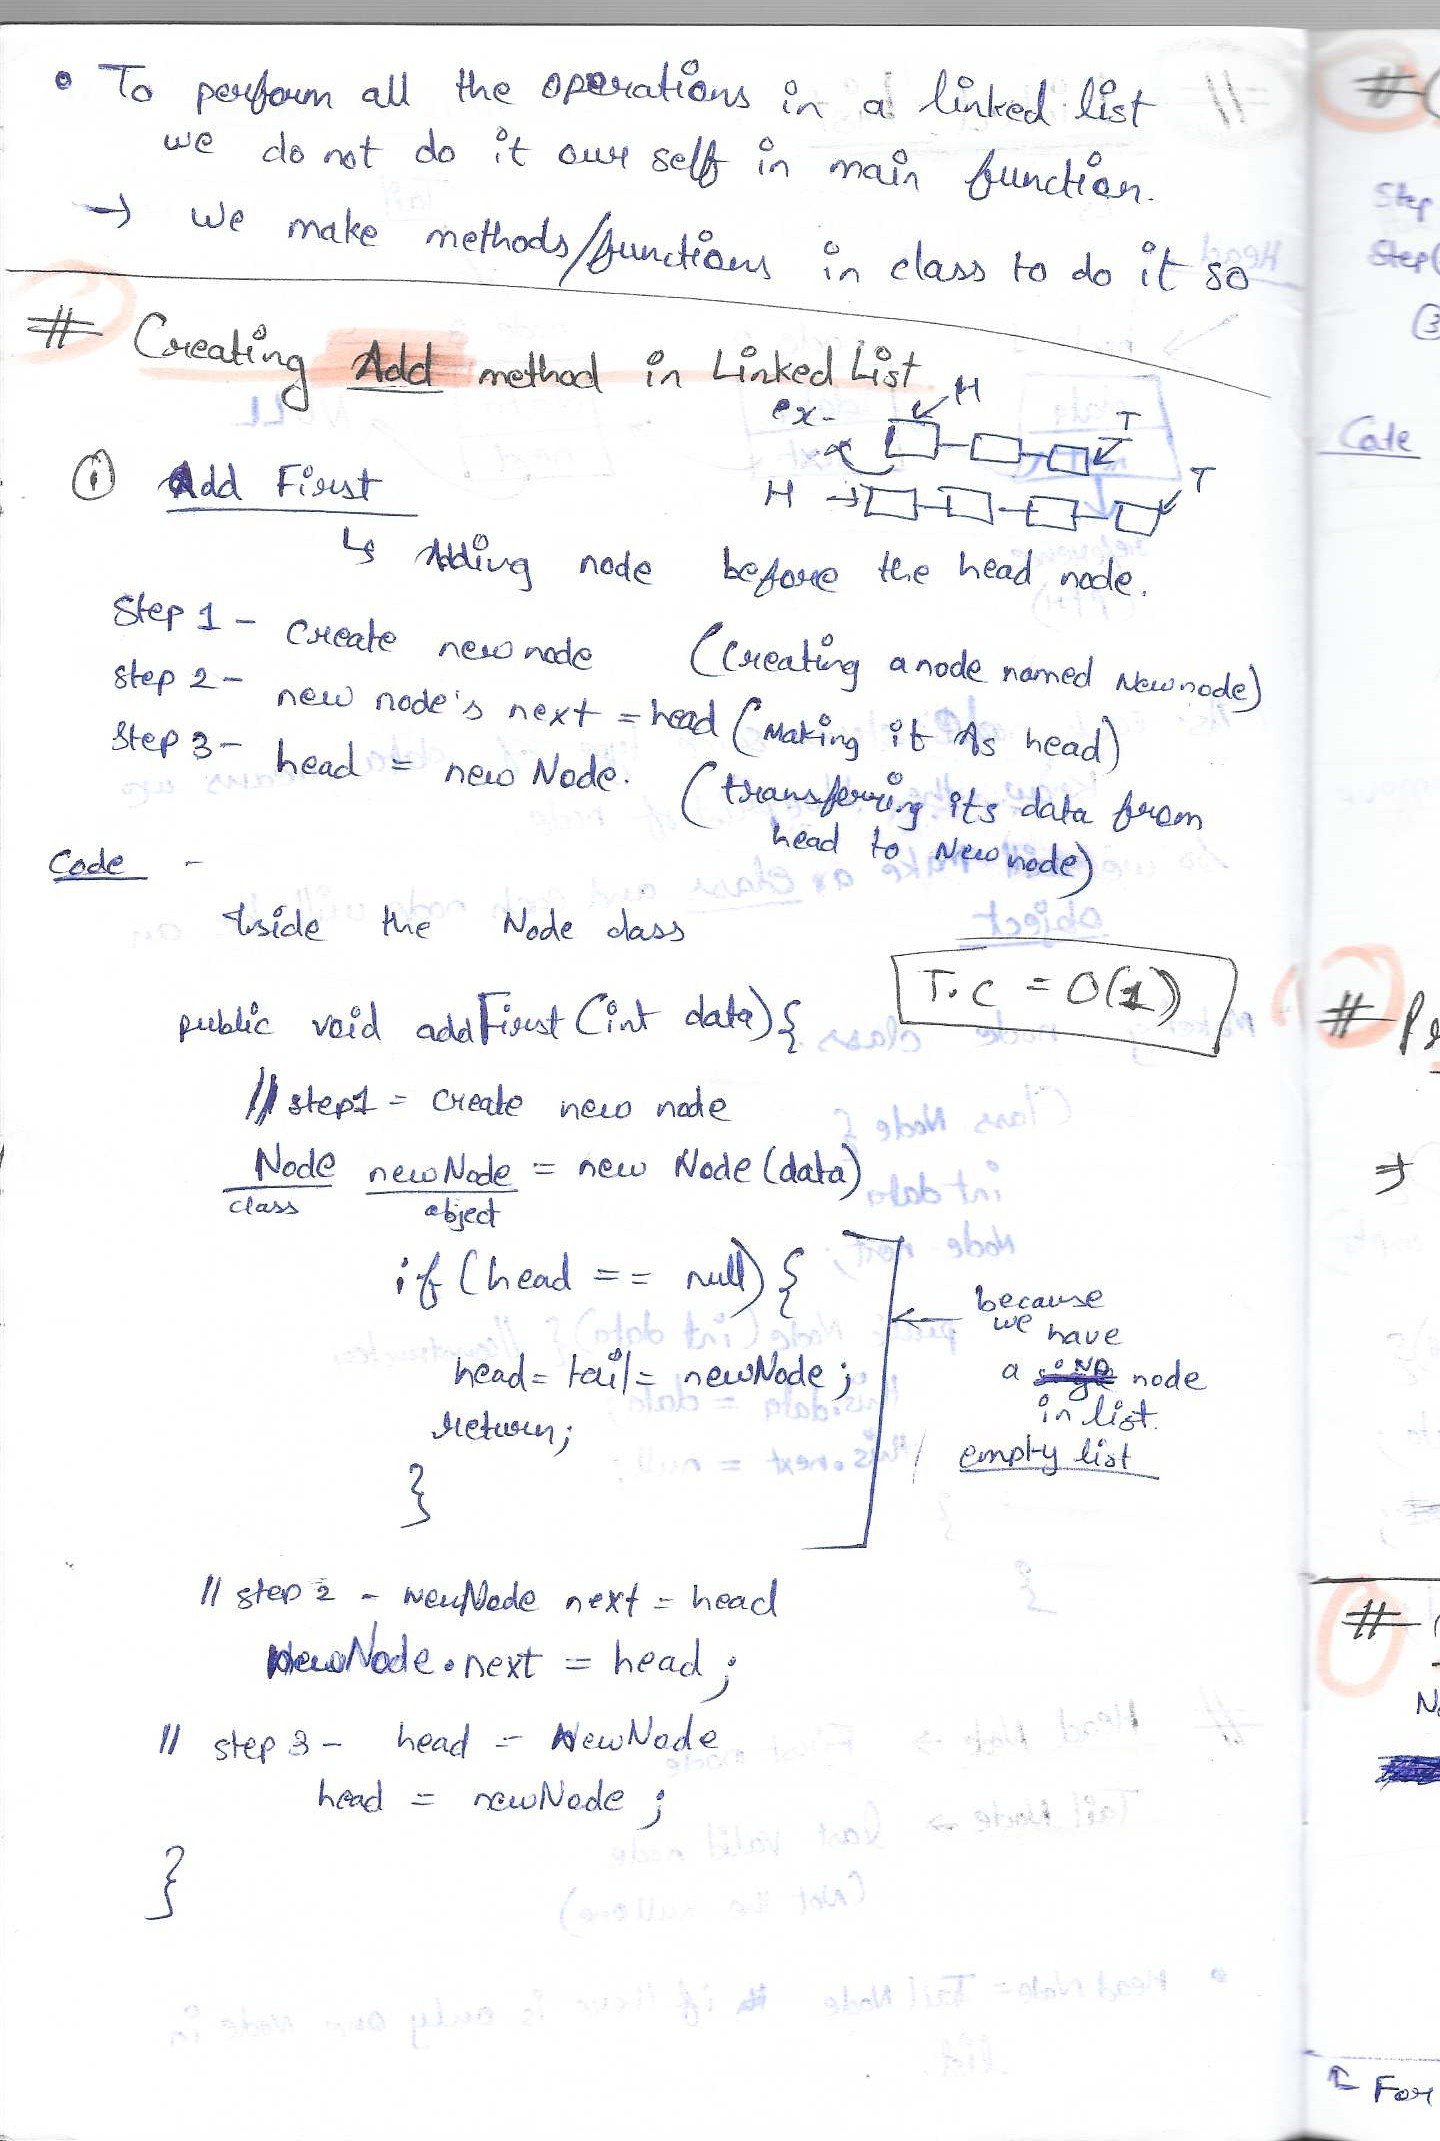 • To perform all the operations in a linked list
we do not do it our self in main function.
→ we make methods/functions in class to do it so
# Creating Add method in Linked List
ex- H T
① Add First
H → T
↳ Adding node before the head node.
Step 1 - Create new node (Creating a node named Newnode)
Step 2 - new node's next = head (Making it As head)
Step 3 - head = new Node. (transferring its data from
head to New node)
Code -
Inside the Node class
T.C = O(1)
public void addFirst (int data) {
// step1 = create new node
Node newNode = new Node (data)
class object
if (head == null) {
head = tail = newNode ;
return;
}
because
we have
a no node
in list.
empty list
// step 2 - newNode next = head
newNode.next = head ;
// step 3 - head = NewNode
head = newNode ;
}
# (
Step
Step(
③
Code
# Pr
⇒
#
No
For